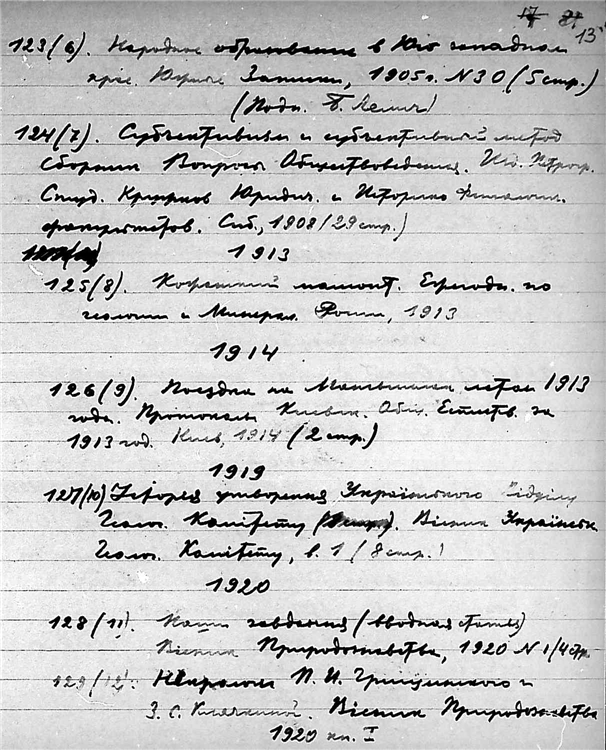 17 21
13
123(6). Народное образование в Юго западном
крае. Южные Записки, 1905 г. N 30 (5 стр.)
(Подп. Б. Лемич)
124(7). Субъективизм и субъективный метод
Сборник Вопросы Обществоведения. Изд. Петрогр.
Студ. Кружков Юридич. и Историко Филологич.
факультетов. Спб., 1908 (29 стр.)
1913
125(8). мамонт. Ежегодн. по
геологии и Минерал. России, 1913
1914
126(9). Поездка на летом 1913
года. Протоколы Киевск. Общ. Естеств. за
1913 год. Киев, 1914 (2 стр.)
1919
127(10) Історія утворення Українського Відділу
Геол. Комітету. Вісник Українськ.
Геол. Комітету, в. 1 (8 стр.)
1920
128(11). Наши завдання (вводная статья)
Вісник Природознавства, 1920 N 1 (4 стр.
129(12). Некрологи П. И. и
З. С. Вісник Природознавства
1920 кн. I